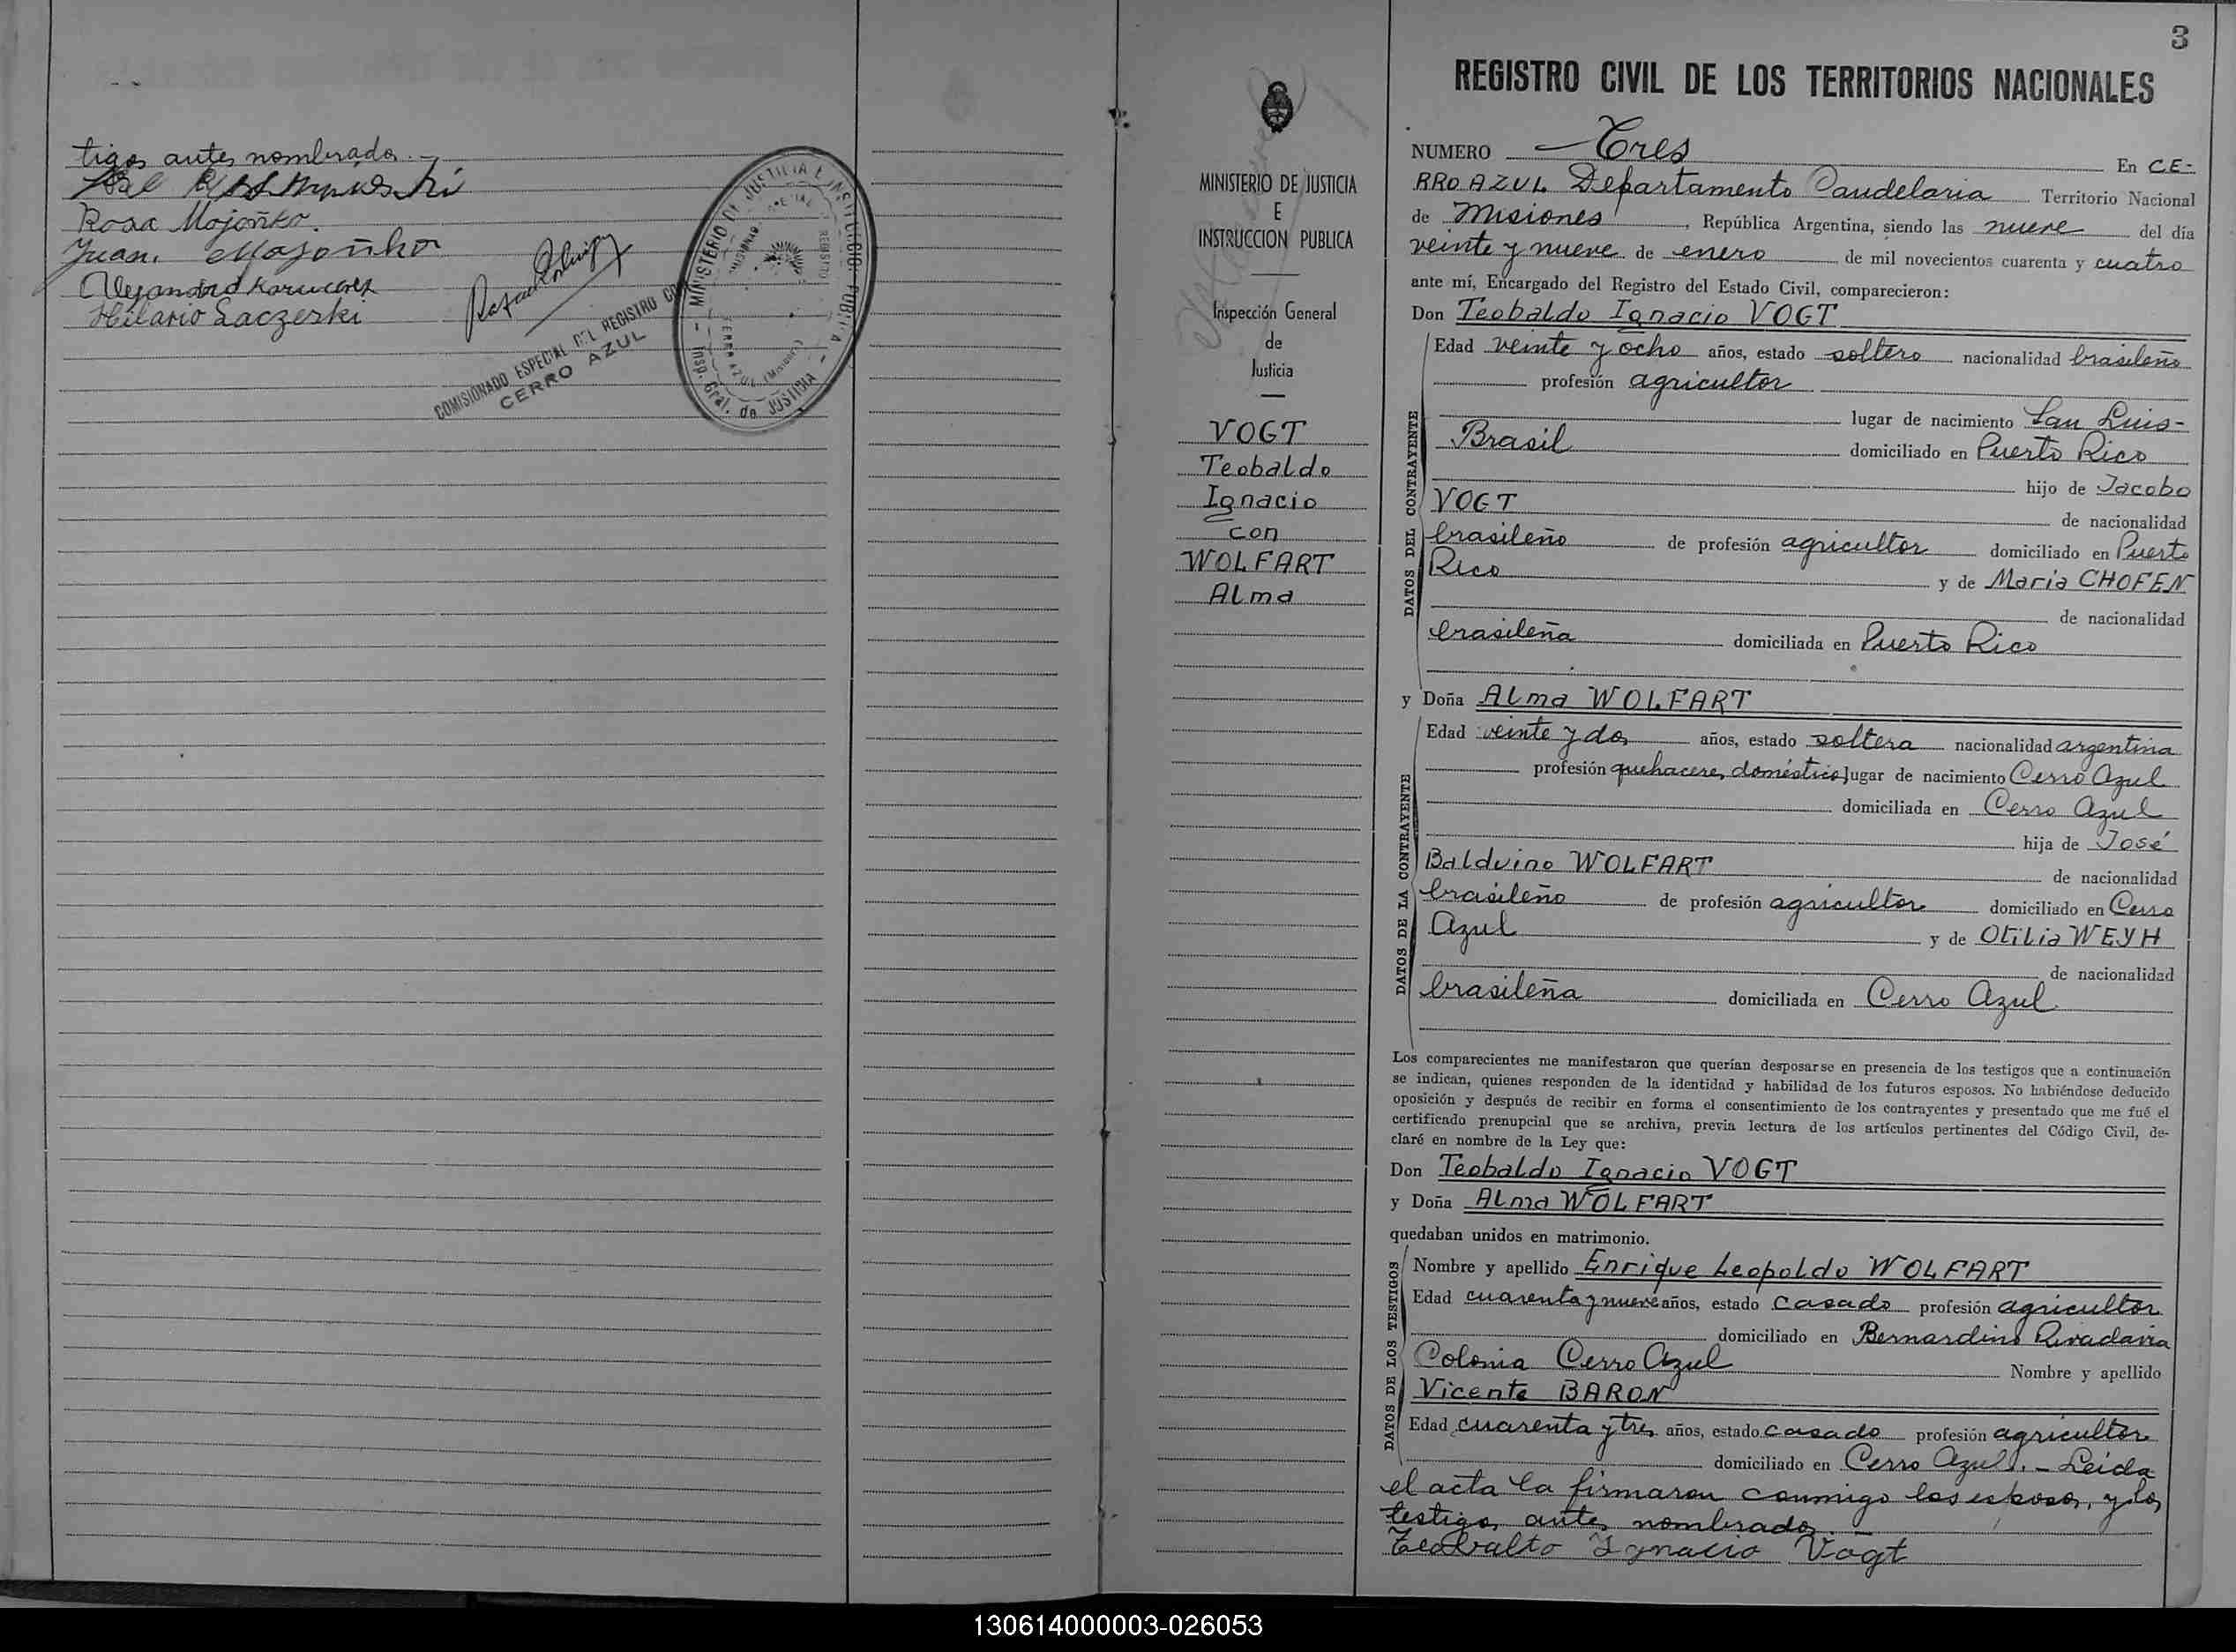 tigos antes nombrados.-
Rosa Mojoñko.
Juan Mojoñko
Alejandro
Hilario Laczeski
COMISIONADO ESPECIAL DEL REGISTRO
CERRO AZUL
MINISTERIO DE JUSTICIA E INSTRUCCION PUBLICA
Insp. Gral. de JUSTICIA
CERRO AZUL (Misiones)
3
REGISTRO CIVIL DE LOS TERRITORIOS NACIONALES
MINISTERIO DE JUSTICIA
E
INSTRUCCION PUBLICA
Inspección General
de
Justicia
VOGT
Teobaldo
Ignacio
con
WOLFART
Alma
NUMERO Tres En CE-
RRO AZUL Departamento Candelaria Territorio Nacional
de Misiones, República Argentina, siendo las nueve del día
veinte y nueve de enero de mil novecientos cuarenta y cuatro
ante mí, Encargado del Registro del Estado Civil, comparecieron:
Don Teobaldo Ignacio VOGT
DATOS DEL CONTRAYENTE
Edad veinte y ocho años, estado soltero nacionalidad brasileño
profesión agricultor
lugar de nacimiento San Luis-
Brasil domiciliado en Puerto Rico
hijo de Jacobo
VOGT de nacionalidad
brasileño de profesión agricultor domiciliado en Puerto
Rico y de Maria CHOFEN
de nacionalidad
brasileña domiciliada en Puerto Rico
y Doña Alma WOLFART
DATOS DE LA CONTRAYENTE
Edad veinte y dos años, estado soltera nacionalidad argentina
profesión quehaceres domésticos lugar de nacimiento Cerro Azul
domiciliada en Cerro Azul
hija de José
Balduino WOLFART de nacionalidad
brasileño de profesión agricultor domiciliado en Cerro
Azul y de Otilia WEYH
de nacionalidad
brasileña domiciliada en Cerro Azul
Los comparecientes me manifestaron que querían desposarse en presencia de los testigos que a continuación
se indican, quienes responden de la identidad y habilidad de los futuros esposos. No habiéndose deducido
oposición y después de recibir en forma el consentimiento de los contrayentes y presentado que me fué el
certificado prenupcial que se archiva, previa lectura de los artículos pertinentes del Código Civil, de-
claré en nombre de la Ley que:
Don Teobaldo Ignacio VOGT
y Doña Alma WOLFART
quedaban unidos en matrimonio.
DATOS DE LOS TESTIGOS
Nombre y apellido Enrique Leopoldo WOLFART
Edad cuarenta y nueve años, estado casado profesión agricultor
domiciliado en Bernardino Rivadavia
Colonia Cerro Azul Nombre y apellido
Vicente BARON
Edad cuarenta y tres años, estado casado profesión agricultor
domiciliado en Cerro Azul.- Leida
el acta la firmaron conmigo los esposos, y los
testigos antes nombrados.-
Teobalto Ignacio Vogt
130614000003-026053